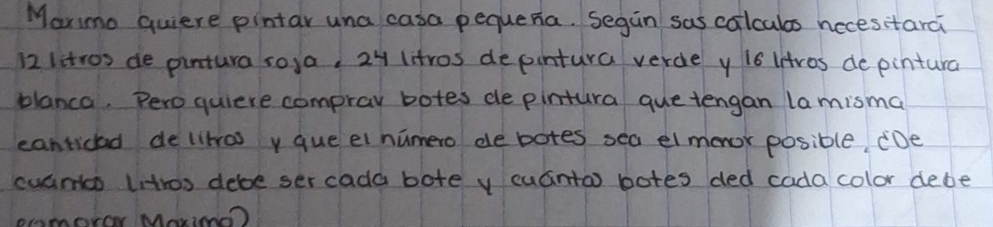 Maximo quiere pintar una casa pequeña. Según sus calculos necesitará
12 litros de pintura roja, 24 litros de pintura verde y 16 litros de pintura
blanca. Pero quiere comprar botes de pintura que tengan la misma
cantidad de litros y que el número de botes sea el menor posible, ¿De
cuántos litros debe ser cada bote y cuántos botes ded cada color debe
Maximo?